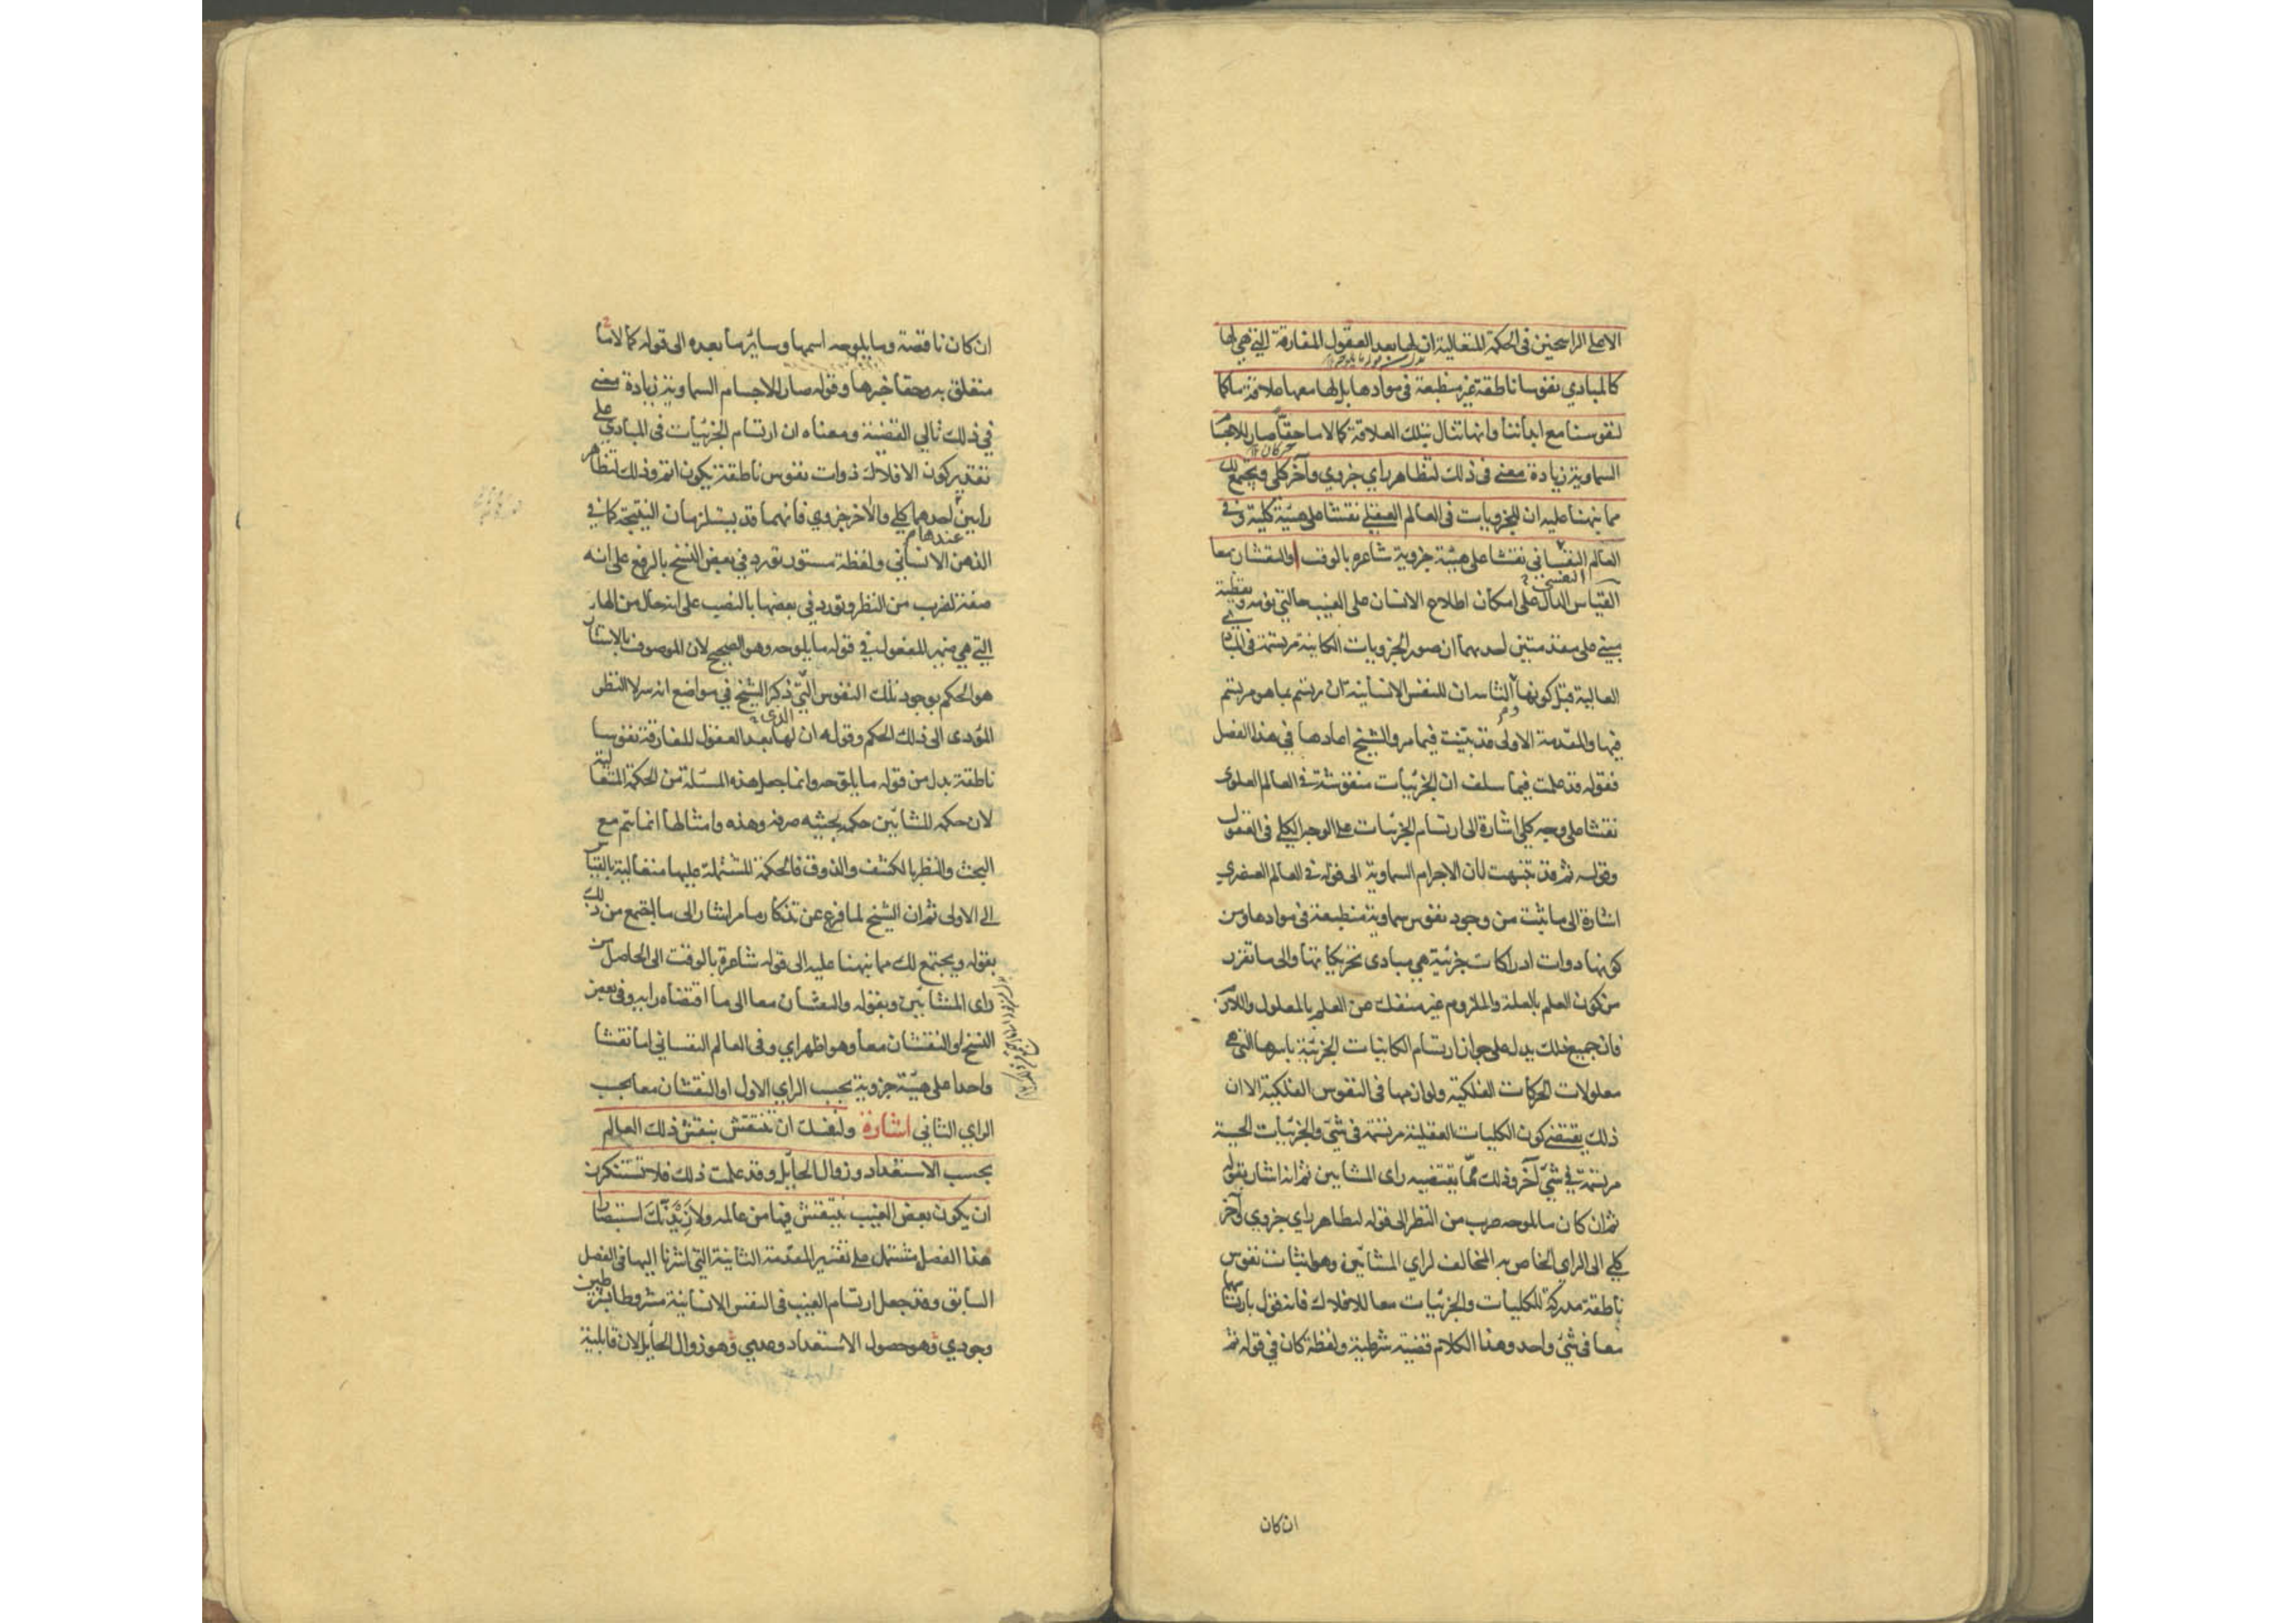 الا على الراسخين فى الحكمة المتعالية ان لها بعد العقول المفارقة التي هي لها
كالمبادي نفوسا ناطقة غير منطبعة فى موادها بل لها معها علاقة ما كما
لنفوسنا مع ابداننا وانها تنال بتلك العلاقة كمالا ما حقّا صار للاجسام
السماوية زيادة معنى فى ذلك لتظاهر راي جزوي وآخر كلي ويجتمع لك
مما نبهنا عليه ان للجزويات فى العالم العقلي نقشا على هيئة كلية وفى
العالم النفساني نقشا على هيئة جزوية شاعرة بالوقت او النقشان معا
القياس الدال على امكان اطلاع الانسان على الغيب حالتي نومه ويقظته
مبني على مقدمتين احديهما ان صور الجزويات الكاينة مرتسمة فى المبادي
العالية قبل كونها والثانية ان للنفس الانسانية ان ترتسم بما هو مرتسم
فيها والمقدمة الاولى قد تبيّنت فيما مر والشيخ اعادها في هذا الفصل
فقوله قد علمت فيما سلف ان الجزئيات منقوشة فى العالم العلوى
نقشا على وجه كلي اشارة الى ارتسام الجزئيات على الوجه الكلي فى العقول
وقوله ثم قد تنبهت لان الاجرام السماوية الى قوله فى العالم العنصري
اشارة الى ما ثبت من وجود نفوس سماوية منطبعة فى موادها ومن
كونها ذوات ادراكات جزئية هي مبادى تحريكاتها والى ما تقرر
من كون العلم بالعلة والملزوم غير منفك عن العلم بالمعلول واللازم
فان جميع ذلك يدل على جواز ارتسام الكاينات الجزئية باسرها التي هي
معلولات الحركات الفلكية ولوازمها فى النفوس الفلكية الا ان
ذلك يقتضي كون الكليات العقلية مرتسمة فى شئ والجزئيات الحسية
مرتسمة في شئ آخر وذلك ممّا يقتضيه راى المشايين ثم انه اشار بقوله
ثم ان كان ما يلوحه ضرب من النظر الى قوله لتظاهر راي جزوي وآخر
كلي الى الراي الخاص به المخالف لراي المشائين وهو اثبات نفوس
ناطقة مدركة للكليات والجزئيات معا للافلاك فانه يقول بارتسامها
معا فى شئ واحد وهذا الكلام قضية شرطية ولفظة كان في قوله ثم
ان كان
ان كان ناقصة وما يلوحه اسمها وسايرها بعده الى قوله كمالا ما
متعلق به وحقا خبرها وقوله صار للاجسام السماوية زيادة معنى
في ذلك تالي القضية ومعناه ان ارتسام الجزئيات فى المبادي على
تقدير كون الافلاك ذوات نفوس ناطقة يكون اتم وذلك لتظاهر
رايين احدهما كلي والآخر جزوي فانهما قد يستلزمان النتيجة كما في
الذهن الانساني ولفظة مستور تورد في بعض النسخ بالرفع على انه
صفة لضرب من النظر وتورد في بعضها بالنصب على انه حال من الهاء
التي هي ضمير المفعول في قوله ما يلوحه وهو الصحيح لان الموصوف بالاستتار
هو الحكم بوجود تلك النفوس التي ذكر الشيخ في مواضع انه سر لا النظر
المؤدى الى ذلك الحكم وقوله ان لها بعد العقول المفارقة نفوسا
ناطقة بدل من قوله ما يلوحه وانما جعل هذه المسئلة من الحكمة المتعالية
لان حكمة المشائين حكمة بحثية صرفة وهذه وامثالها انما تتم مع
البحث والنظر بالكشف والذوق فالحكمة المشتملة عليها متعالية بالقياس
الى الاولى ثم ان الشيخ لما فرغ عن تذكار ما مر اشار الى ما اجتمع من ذلك
بقوله ويجتمع لك مما نبهنا عليه الى قوله شاعرة بالوقت الى الحاصل من
راى المشائين وبقوله والنقشان معا الى ما اقتضاه رايه وفى بعض
النسخ او النقشان معا وهو اظهر اي وفى العالم النفساني اما نقشا
واحدا على هيئة جزوية بحسب الراي الاول او النقشان معا بحسب
الراي الثاني اشارة ولنفسك ان تنتقش بنقش ذلك العالم
بحسب الاستعداد وزوال الحايل وقد علمت ذلك فلا تستنكرن
ان يكون بعض الغيب ينتقش فيها من عالمه ولازيدنّك استبصارا
هذا الفصل مشتمل على تقرير المقدمة الثانية التي اشرنا اليها فى الفصل
السابق وقد جعل ارتسام الغيب فى النفس الانسانية مشروطا بشرطين
وجودي وهو حصول الاستعداد وعدمي وهو زوال الحايل لان قابلية